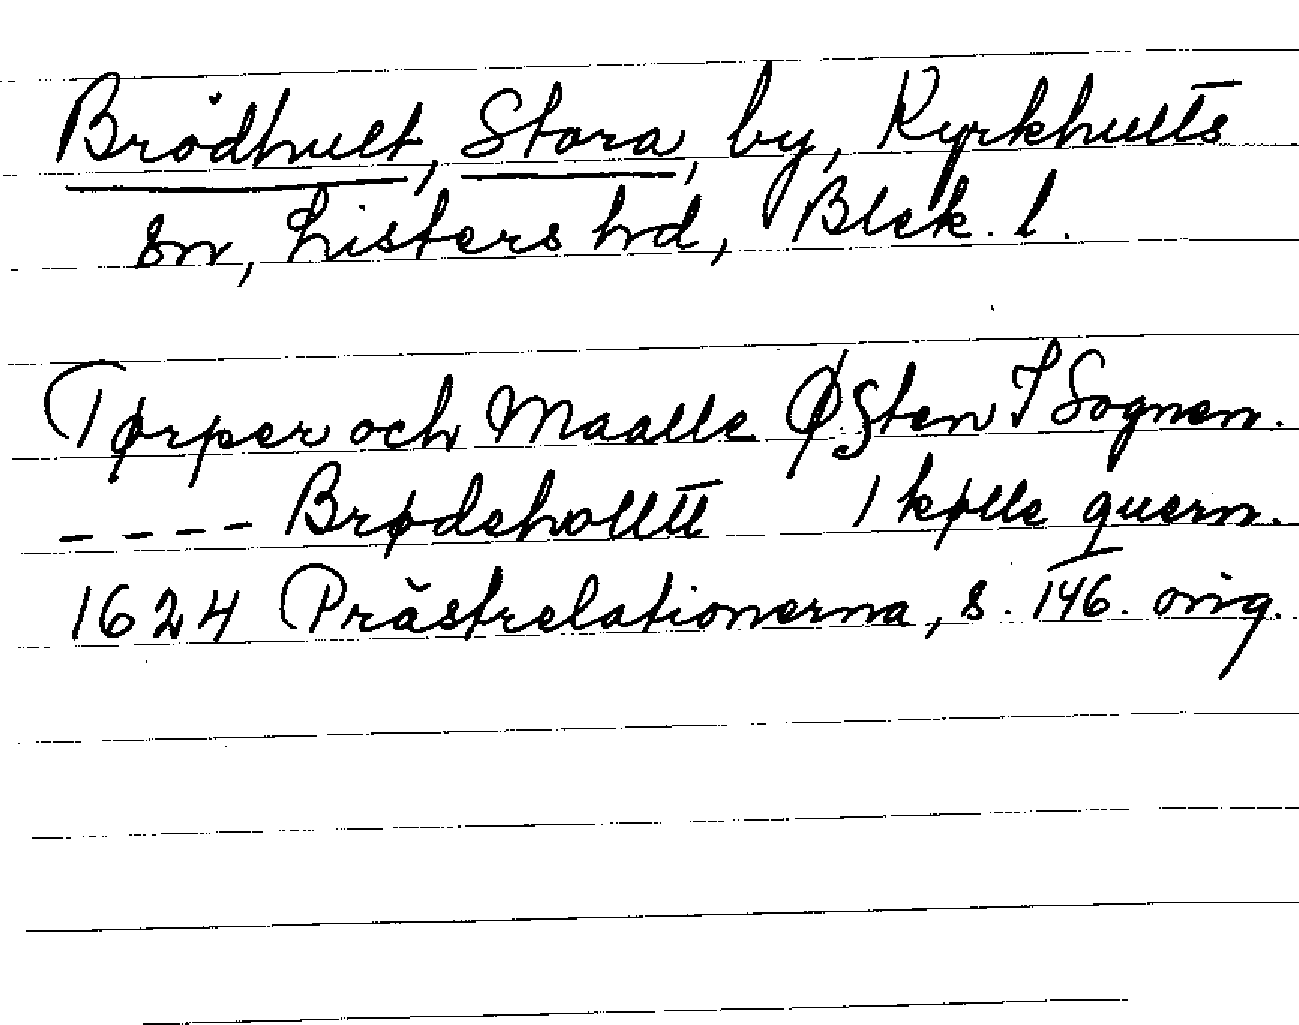 Brödhult, Stora, by, Kyrkhults
sn, Listers hd, Blek. l.
Tørper och Maalle ØSten I Sognen.
---- Brødeholltt 1 kølle quern.
1624 Prästrelationerna, s. 146. orig.